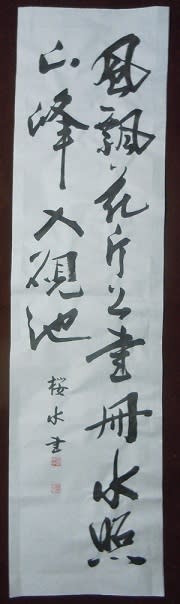 風飄花片上書冊水照
山峰入硯池
桜水書